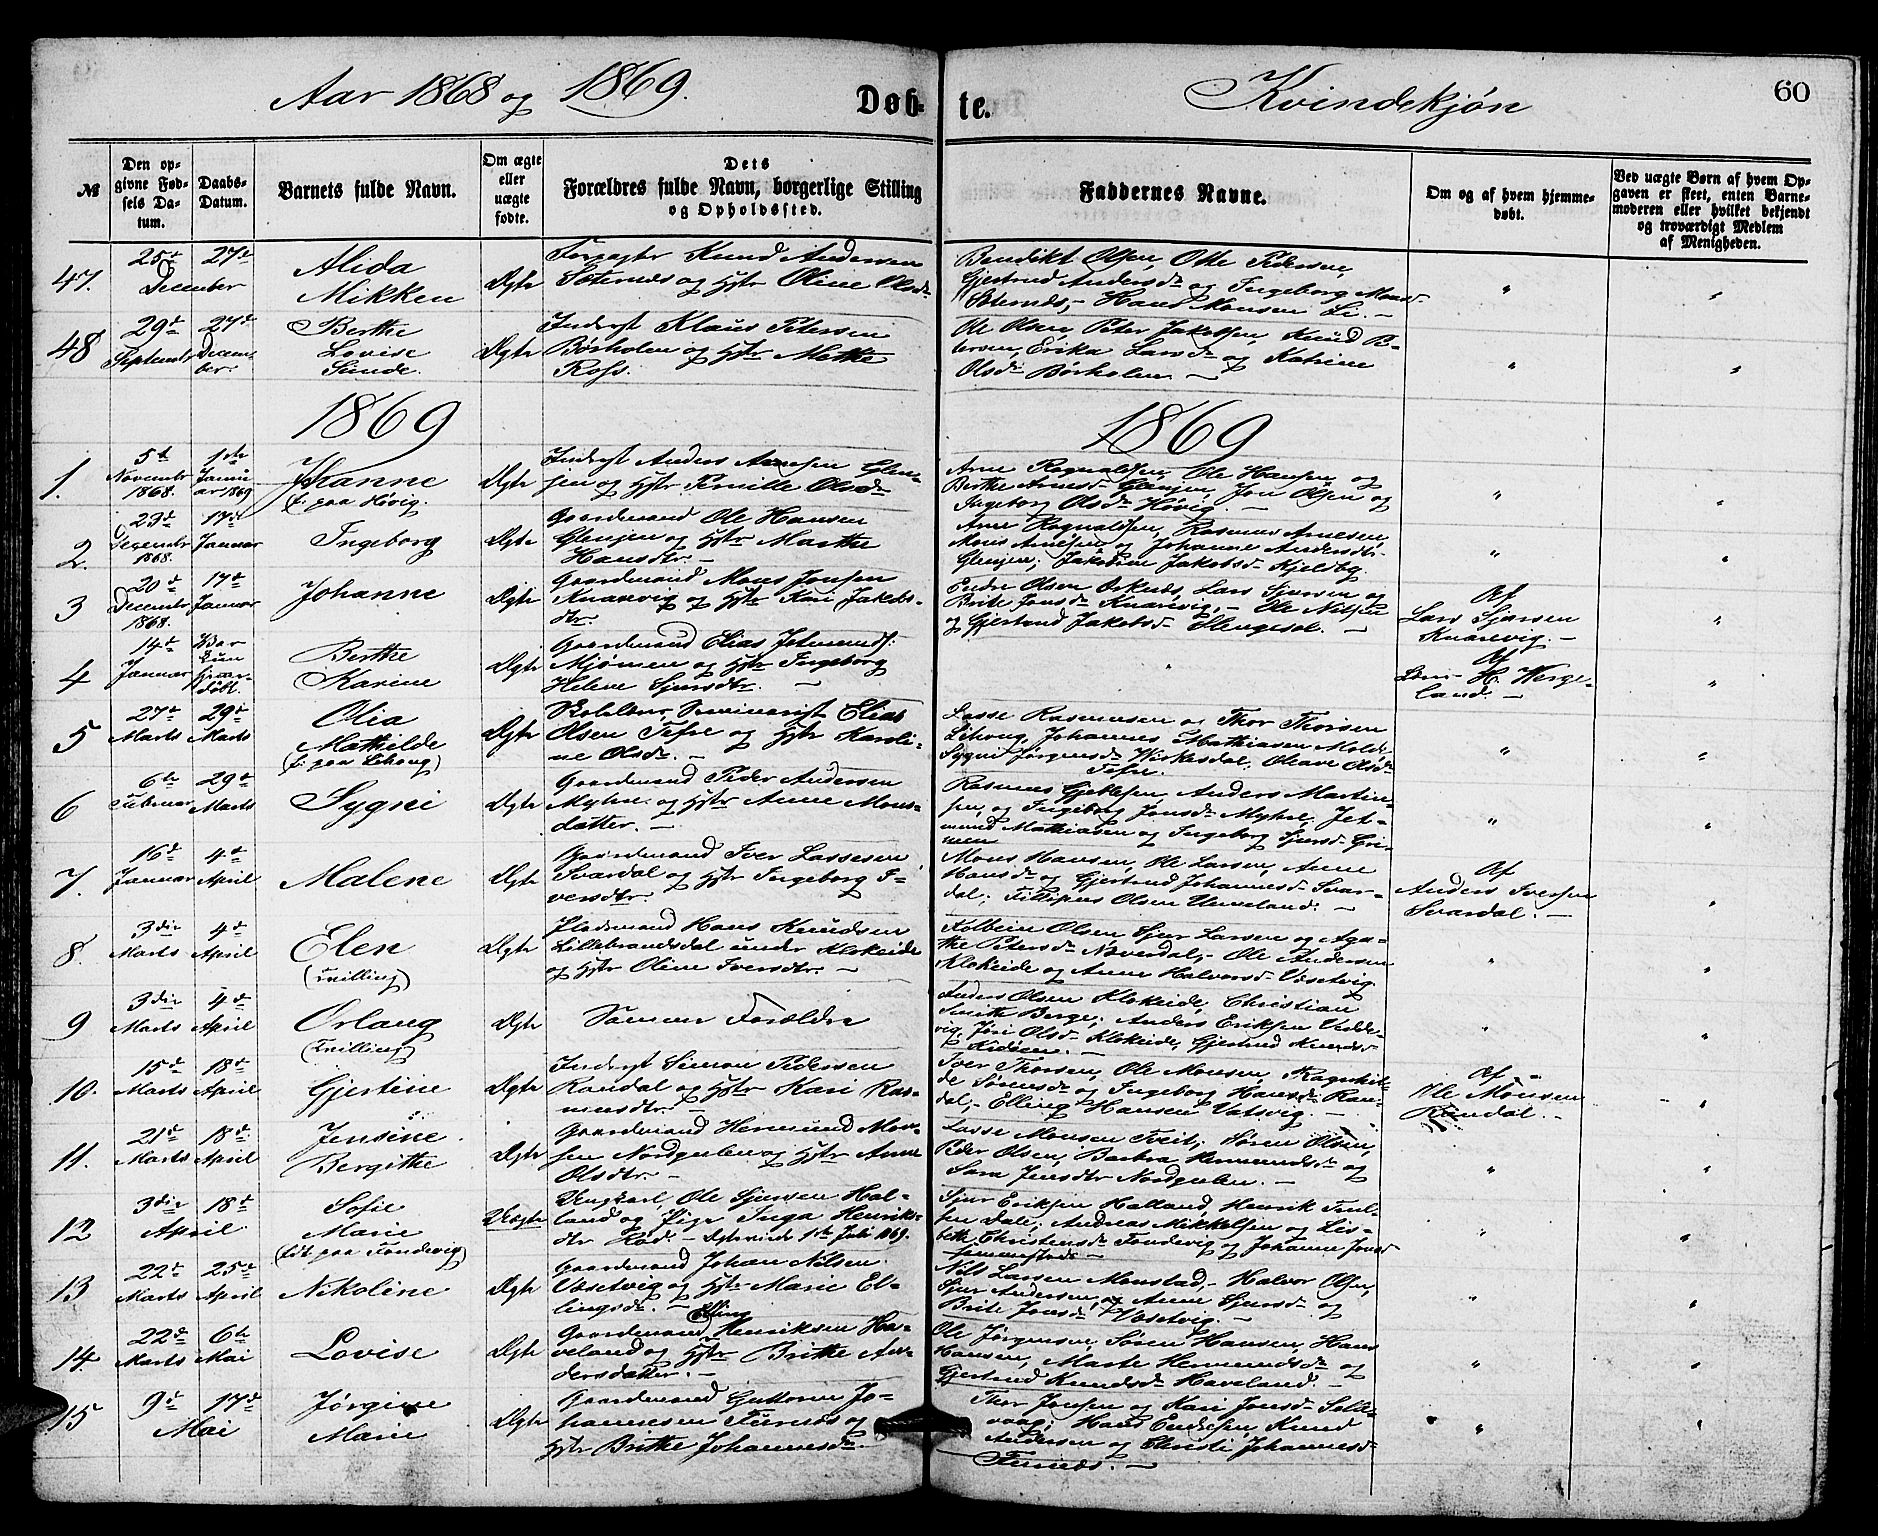 Aar 1868 og 1869.
Døb-
te.
Kvindekjøn
60
№
Den op-
givne Fød-
sels Da-
tum.
Daabs-
Datum.
Barnets fulde Navn.
Om ægte
eller
uægte
fødte.
Dets
Forældres fulde Navn, borgerlige Stilling
og Opholdssted.
Faddernes Navne.
Om og af hvem hjemme-
døbt.
Ved uægte Børn af hvem Op-
gaven er skeet, enten Barne-
moderen eller hvilket bekjendt
og troværdigt Medlem
af Menigheden.
47.
25de
December
27de
Alida
Mikken
Ægte
Forpagter Knud Andersen
Sæternes og Hstr Oline Olsdr
Benedikt Olsen, Otte Pedersen,
Gjertrud Andersdr og Ingeborg Monsdr
Sæternes, - Hans Monsen Li. -
48
29de
September
27de
Decem-
ber.
Berthe
Lovise
Sunde.
Ægte
Inderst Klaus Petersen
Børholen og Hstr Marthe
Ross.
Ole Olsen, Peter Jakobsen, Knud P-
tersen, Erika Larsdr og Katrine
Olsdr Børholen -
1869
1869
1.
5te
Novembr
1868.
1ste
Janu-
ar 1869
Johanne
(f. paa Høvig.
Ægte
Inderst Anders Arnesen Glen-
jen og Hstr Pernille Olsdr
Arne Ragnaldsen, Ole Hansen og
Berthe Arnesdr Glenjen, Jon Olsen og
Ingeborg Olsdr Høvig. -
2.
23de
Decembr
1868.
17de
Januar
Ingeborg
Ægte
Gaardmand Ole Hansen
Glenjen og Hstr Marthe
Hansdtr. -
Arne Ragnaldsen, Rasmus Arnesen,
Mons Arnesen og Johanne Andersdtr.
Glenjen; Jakobine Jakobsd. Kjeldbg.
3
20de
Decembr
1868.
17de
Januar
Johanne
Ægte
Gaardmand Mons Jonsen
Knarevig og Hstr Kari Jakobs-
dtr.
Endre Olsen Osknes, Lars Sjursen og
Brite Jonsdr Knarevig, - Ole Nilsen
og Gjertrud Jakobsdr Slengesol. -
Af
Lars Sjursen
Knarevig. -
4
14de
Januar
Var
kun
hjem-
døbt.
Berthe
Karine
Ægte
Gaardmand Elias Jetmunds.
Mjømen og Hstr Ingeborg
Helene Sjursdtr. -
Af
H. Werge-
land. -
5
27de
Marts
29de
Marts
Olia
Mathilde
(f. paa Lihoug)
Ægte
Skolelærer Seminarist Elias
Olsen Tefre og Hstr Karoli-
ne Olsdr. -
Lasse Rasmussen og Thor Thorsen
Lihoug, Johannes Mathiasen Molde
Sygni Jørgensdr Wirkesdal; Oleave Olsdr
Tefre.
6
6te
Februar
29de
Marts
Sygni
Ægte
Gaardmand Peder Andersen
Myhre og Hstr Anne Mons-
datter. -
Rasmus Gjeblesen, Anders Martin-
sen, og Ingeborg Jonsdr Myhre, Jet-
mund Mathiasen og Ingeborg Sjursdr Gri-
men
7.
16de
Januar
4de
April
Malene
Ægte
Gaardmand Iver Lassesen
Svardal og Hstr Ingeborg I-
versdtr.
Mons Hansen, Ole Larsen, Anne
Hansdr og Gjertrud Johannesdr Svar-
dal; Fillipus Olsen Unneland. -
Af
Anders Iversen
Svardal. -
8.
3die
Marts
4de
April
Elen
(Tvilling)
Ægte
Pladsmand Hans Knudsen
Lillebrandsdal under Klokeide
og Hstr Oline Iversdtr. -
Kolbein Olsen, Sjur Larsen og Aga-
the Petersdr Nøverdal, - Ole Andersen
Klokeide og Anne Halvorsdr Vasetvig
9
3die
Marts
4de
April
Ørlaug
(Tvilling)
Ægte
Samme Forældre
Anders Olsen Klokeide, Christian
Smith Berge; Anders Eriksen Vadde-
vig, Jøri Olsdr Klokeide, Gjertrud Knudsdr
10.
15de
Marts
18de
April
Gjertine
Ægte
Inderst Simon Pedersen
Randal og Hstr Kari Ras-
musdtr. -
Iver Thorsen, Ole Monsen, Ragnhil-
de Sørensdr og Ingeborg Hansdr Ran-
dal, - Elling Hansen Vatsvig. -
Af
Ole Monsen
Randal. -
11.
21de
Marts
18de
April
Jensine
Bergithe
Ægte
Gaardmand Hermund Mon-
sen Nordgulen og Hstr Anne
Olsdtr. -
Lasse Monsen Tveit; Søren Olsen,
Peder Olsen, Barbra Hermundsdr og
Sara Jensdtr Nordgulen. -
12
3die
April
18de
Sofie
Marie
(født paa Fondevig)
Uægte
Ungkarl Ole Sjursen Hal-
land og Pige Inga Henriks-
dtr Hød. - Ægteviede 1ste Juli 1869.
Sjur Eriksen Halland, Henrik Paul-
sen Dale; Andreas Mikkelsen og Lis-
beth Christensdr Fondevig og Johanne Jonsdr
13
22de
Marts
25de
April
Nikoline
Ægte
Gaardmand Johan Nilsen
Vasetvig og Hstr Marie El-
lingsdr. -
Nils Larsen Monstad, - Halvor Olsen,
Sjur Andersen og Anne Sjursdr og
Brite Jonsdr, Vasetvig. -
14.
22de
Marts
6te
Mai
Lovise
Ægte
Elling
Gaardmand Henriksen Ha-
veland og Hstr Brithe An-
dersdatter. -
Ole Jørgensen, Søren Hansen, Hans
Hansen, Marte Hermundsdr og
Gjertrud Knudsdr Haveland. -
15
9de
Mai
17de
Jørgine
Marie
Ægte
Gaardmand Guttorm Jo-
hannesen Furenæs og
Hstr Brithe Johannesdr. -
Thor Jonsen og Kari Jonsdr Selle-
vaag; Hans Endresen, Knud
Andersen og Christi Johannesdr
Furenæs. -